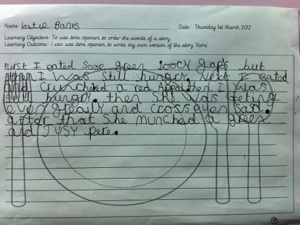 Name: Lottie Banks
Date: Thursday 1st March 2012
Learning Objective: To use time openers to order the events of a story
Learning Outcome: I can use time openers to write my own version of the story 'Nora'
First I eated some green goocy graps but
then I was still hungry. next I eated
and Crunched a red Appal then I was
still hungry. then She was feling
overy and
after that She munched a green
and JUSY pere.